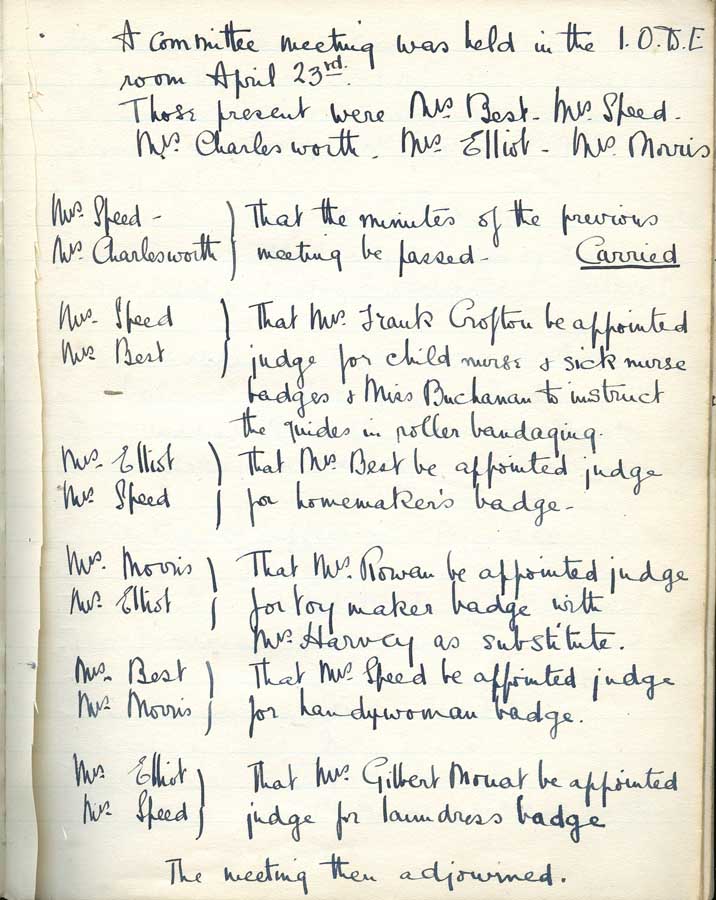 A committee meeting was held in the I.O.D.E
room April 23rd.
Those present were Mrs Best - Mrs Speed -
Mrs Charlesworth - Mrs Elliot - Mrs Morris
Mrs Speed - } That the minutes of the previous
Mrs Charlesworth } meeting be passed - Carried
Mrs Speed } That Mrs. Frank Crofton be appointed
Mrs Best } judge for child nurse & sick nurse
badges & Miss Buchanan to instruct
the guides in roller bandaging.
Mrs. Elliot } That Mrs Best be appointed judge
Mrs Speed } for homemaker's badge -
Mrs. Morris } That Mrs. Rowan be appointed judge
Mrs. Elliot } for toy maker badge with
Mrs Harvey as substitute.
Mrs. Best } That Mrs Speed be appointed judge
Mrs Morris } for handywoman badge.
Mrs Elliot } That Mrs. Gilbert Mouat be appointed
Mrs. Speed } judge for laundress badge
The meeting then adjourned.